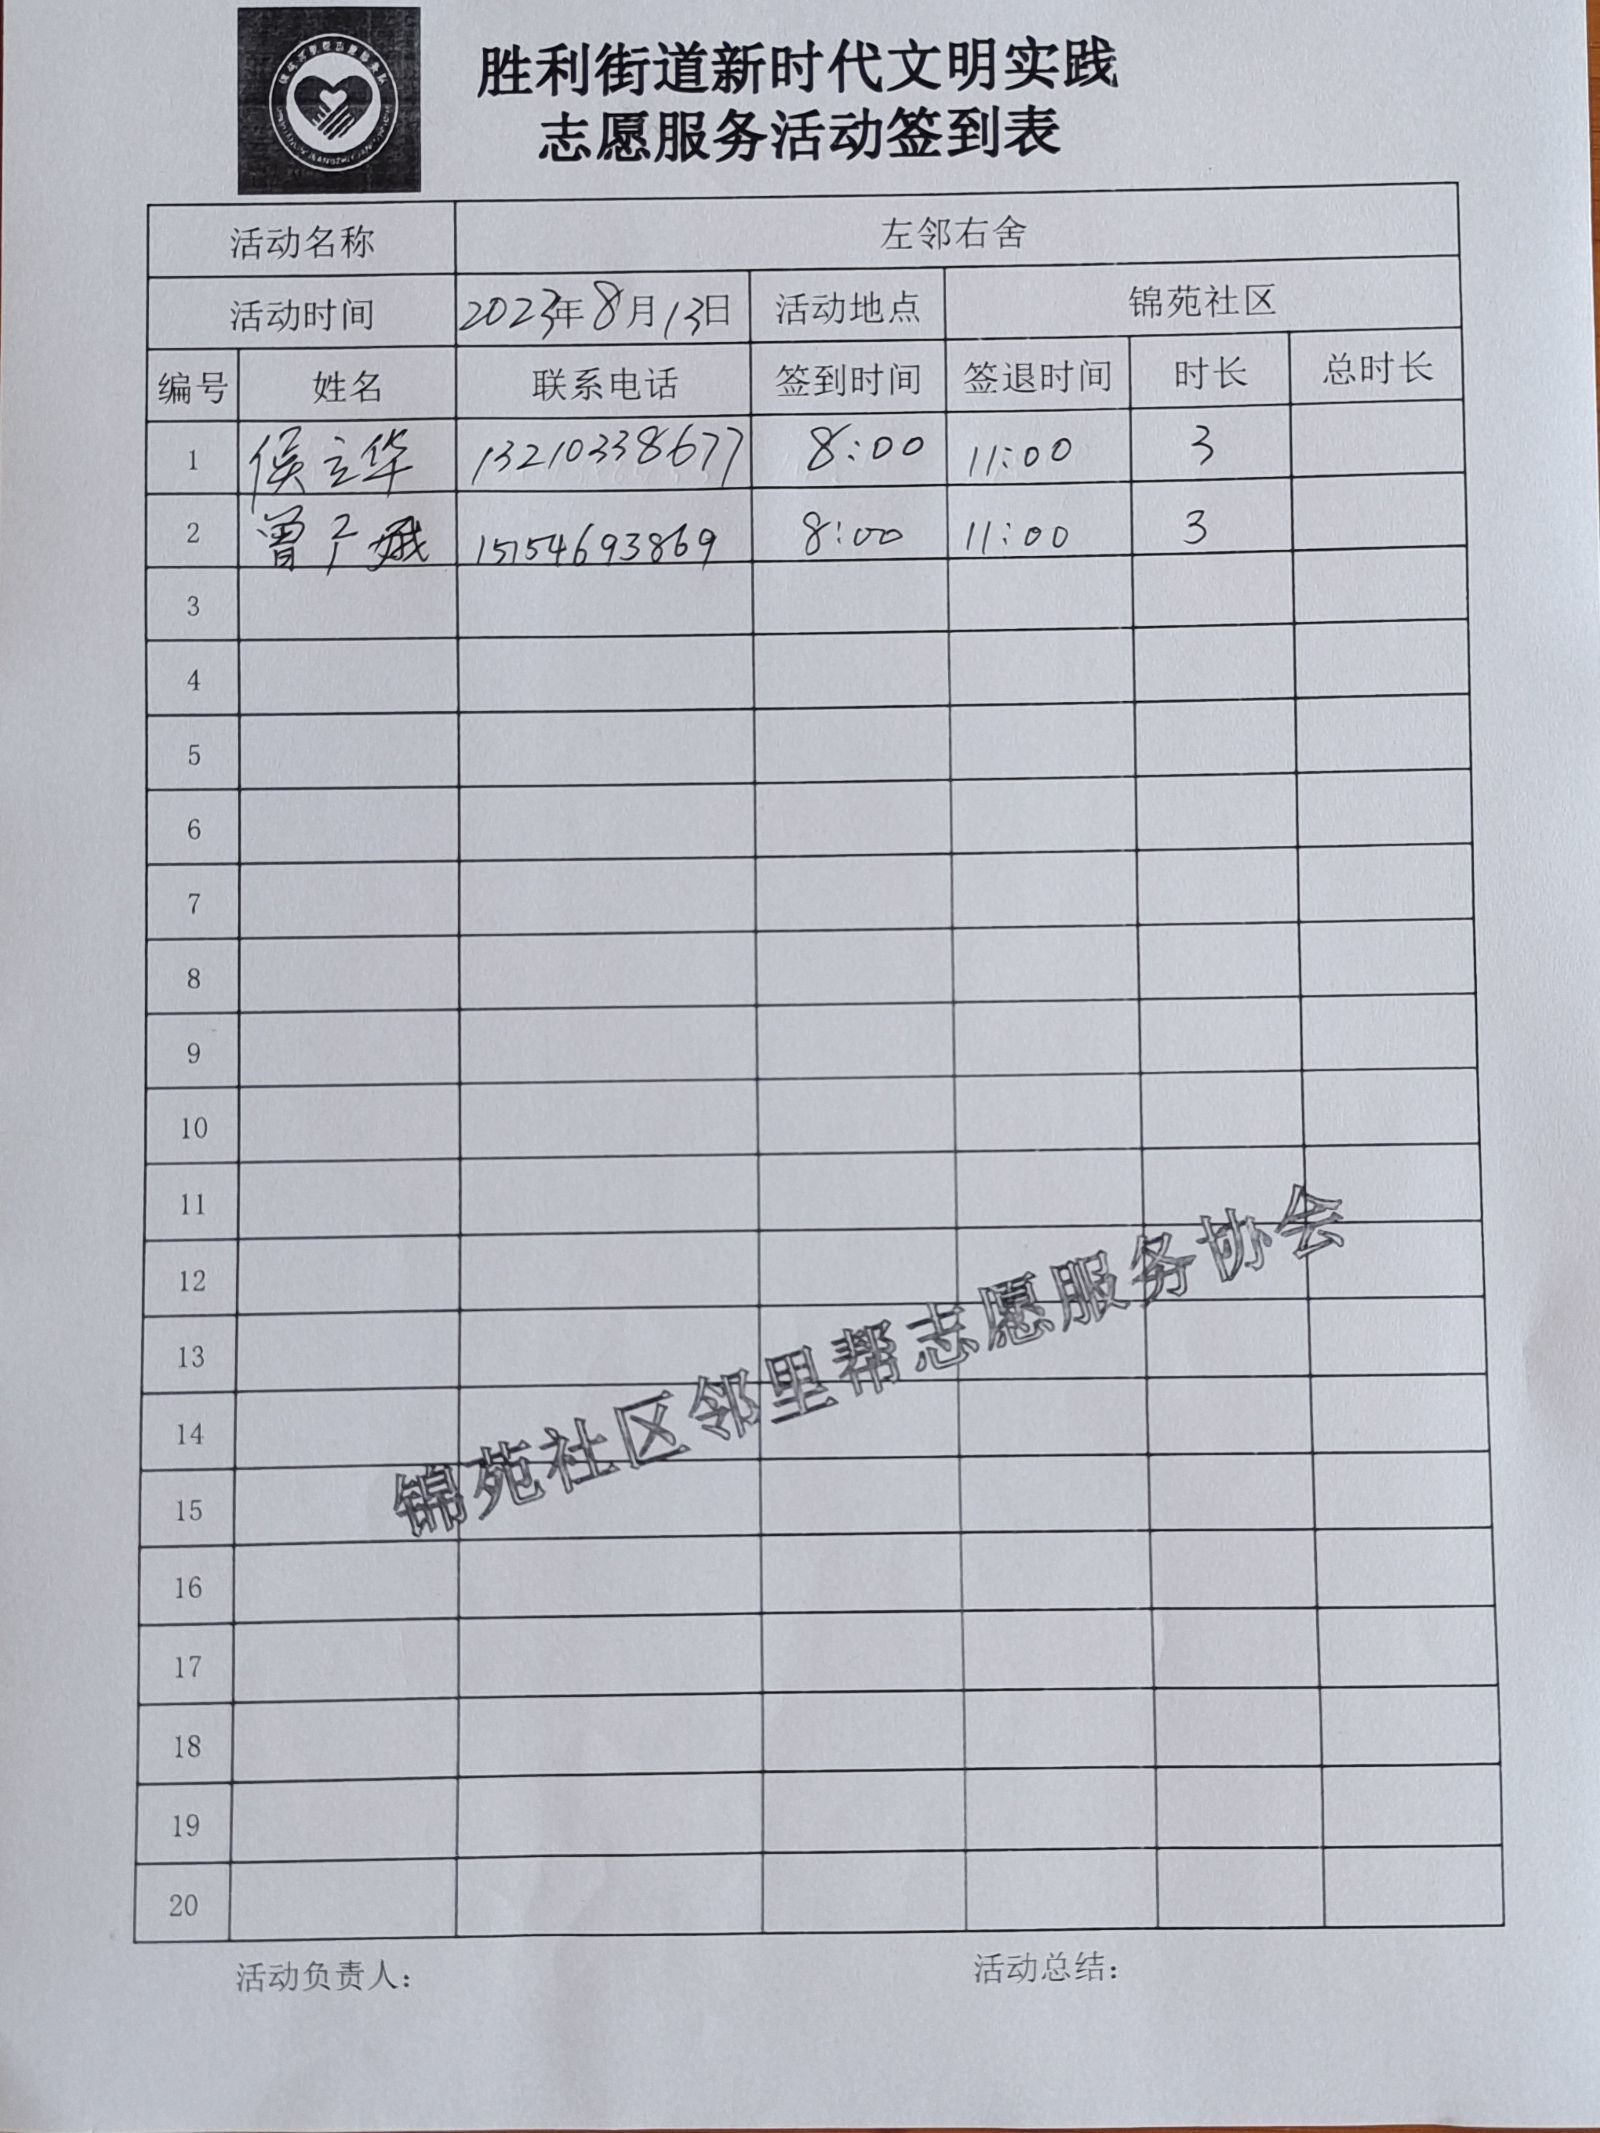 胜利街道新时代文明实践
志愿服务活动签到表
活动名称 左邻右舍
活动时间 2023年8月13日 活动地点 锦苑社区
编号 姓名 联系电话 签到时间 签退时间 时长 总时长
1 侯立华 13210338677 8:00 11:00 3
2 曾广娥 15154693869 8:00 11:00 3
3
4
5
6
7
8
9
10
11
12
13
14
15
16
17
18
19
20
锦苑社区邻里帮志愿服务协会
活动负责人： 活动总结：